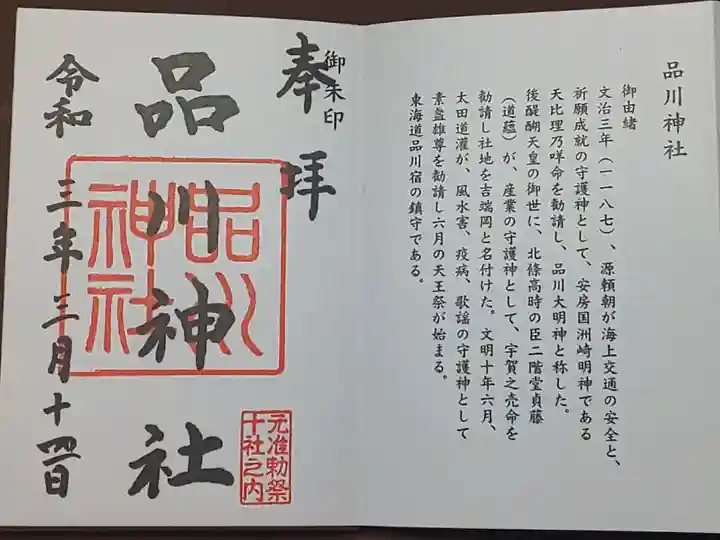 品川神社
御由緒
文治三年（一一八七）、源頼朝が海上交通の安全と、
祈願成就の守護神として、安房国洲崎明神である
天比理乃咩命を勧請し、品川大明神と称した。
後醍醐天皇の御世に、北條高時の臣二階堂貞藤
（道蘊）が、産業の守護神として、宇賀之売命を
勧請し社地を吉端岡と名付けた。文明十年六月、
太田道灌が、風水害、疫病、歌謡の守護神として
素盞雄尊を勧請し六月の天王祭が始まる。
東海道品川宿の鎮守である。
御朱印
奉拝
品川神社
令和三年三月十四日
品川
神社
元准勅祭
十社之内